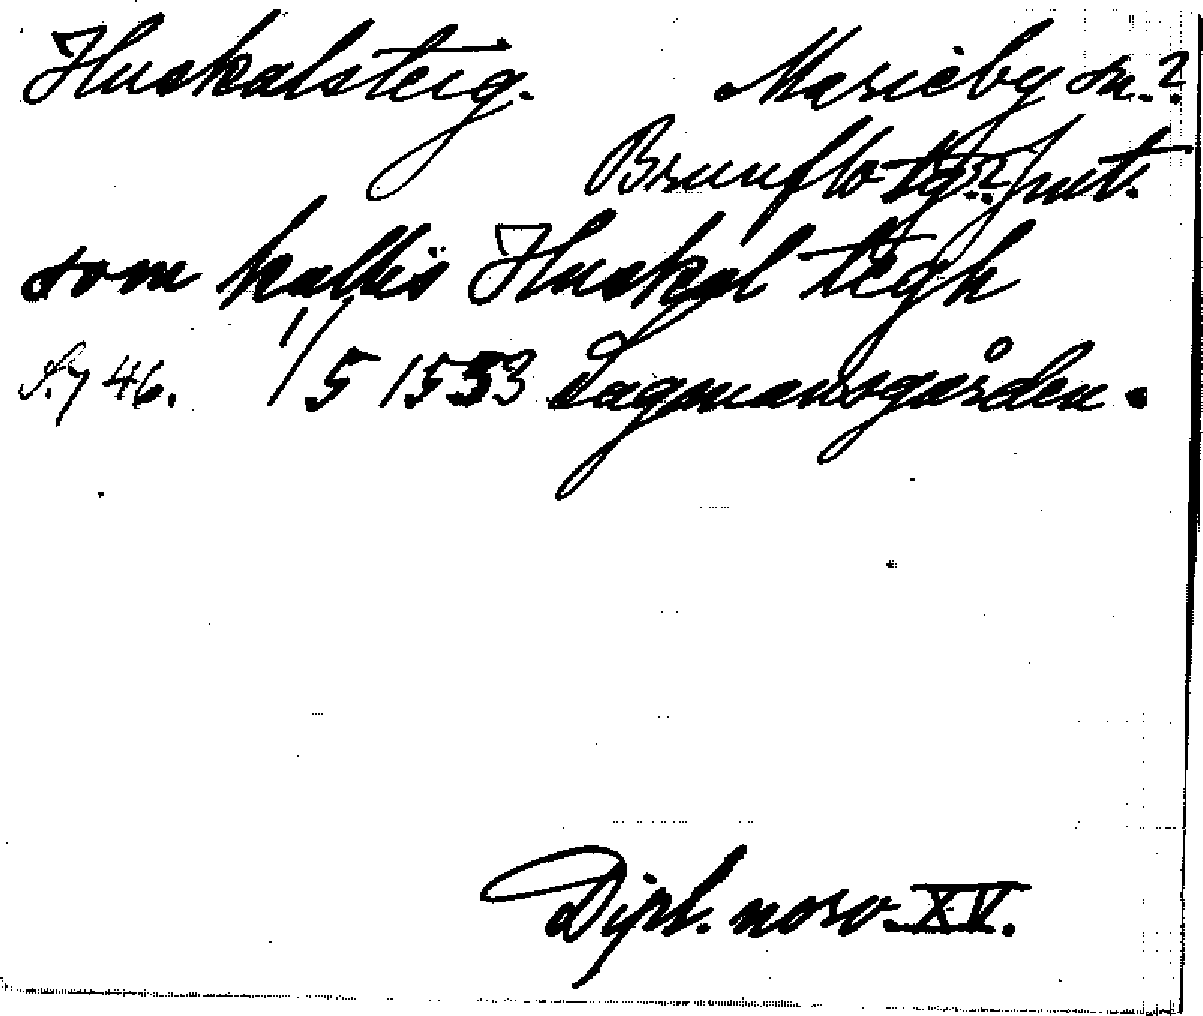 Huskalsteig. Marieby sn.?
Brunflo tg.? Jmt.
som kallis Huskal tegh
S. 746. 1/5 1553 Lagmansgården.
Dipl. norv. XV.